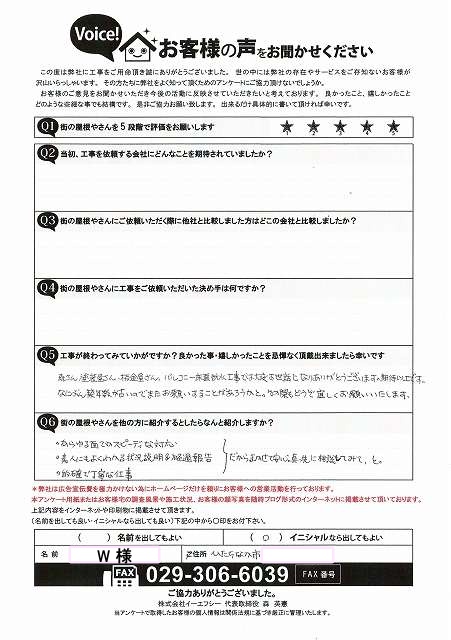 Voice!
お客様の声をお聞かせください
この度は弊社に工事をご用命頂き誠にありがとうございました。 世の中には弊社の存在やサービスをご存知ないお客様が
沢山いらっしゃいます。 その方たちに弊社をよく知って頂くためのアンケートにご協力頂けないでしょうか。
お客様のご意見をお聞かせいただき今後の活動に反映させていただきたいと考えております。 良かったこと、嬉しかったこと
どのような些細な事でも結構です。 是非ご協力お願い致します。 出来るだけ具体的に書いて頂ければ幸いです。
Q1 街の屋根やさんを5段階で評価をお願いします ★1 ★2 ★3 ★4 ★5
Q2 当初、工事を依頼する会社にどんなことを期待されていましたか？
Q3 街の屋根やさんにご依頼いただく際に他社と比較しました方はどこの会社と比較しましたか？
Q4 街の屋根やさんに工事をご依頼いただいた決め手は何ですか？
Q5 工事が終わってみていかがですか？良かった事・嬉しかったことを忌憚なく頂戴出来ましたら幸いです
森さん、塗装屋さん、板金屋さん、バルコニー床 防水工事では大変お世話になりありがとうございます。期待以上です。
なにぶん築年数が古いのでまたお願いすることがあろうかと。その際もどうぞ宜しくお願いいたします。
Q6 街の屋根やさんを他の方に紹介するとしたらなんと紹介しますか？
・あらゆる面でのスピーディな対応
・素人にもよくわかる状況説明&経過報告 だからまかせて安心、先に相談してみて、と。
・的確で丁寧な仕事
＊弊社は広告宣伝費を極力かけない為にホームページだけを頼りにお客様への営業活動を行っております。
＊アンケート用紙またはお客様宅の調査風景や施工状況、お客様の顔写真を随時ブログ形式のインターネットに掲載させて頂いております。
上記内容をインターネットや印刷物に掲載させて頂きます。
（名前を出しても良い・イニシャルなら出しても良い）下記の中から〇印をお付け下さい。
（　　）名前を出してもよい （ 〇 ）イニシャルなら出してもよい
名前 W 様 ご住所 ひたちなか市
FAX 029-306-6039 FAX 番号
ご協力ありがとうございました。
株式会社イーエフシー 代表取締役 森 英憲
当アンケートで取得したお客様の個人情報は関係法規に基づき厳正に管理いたします。